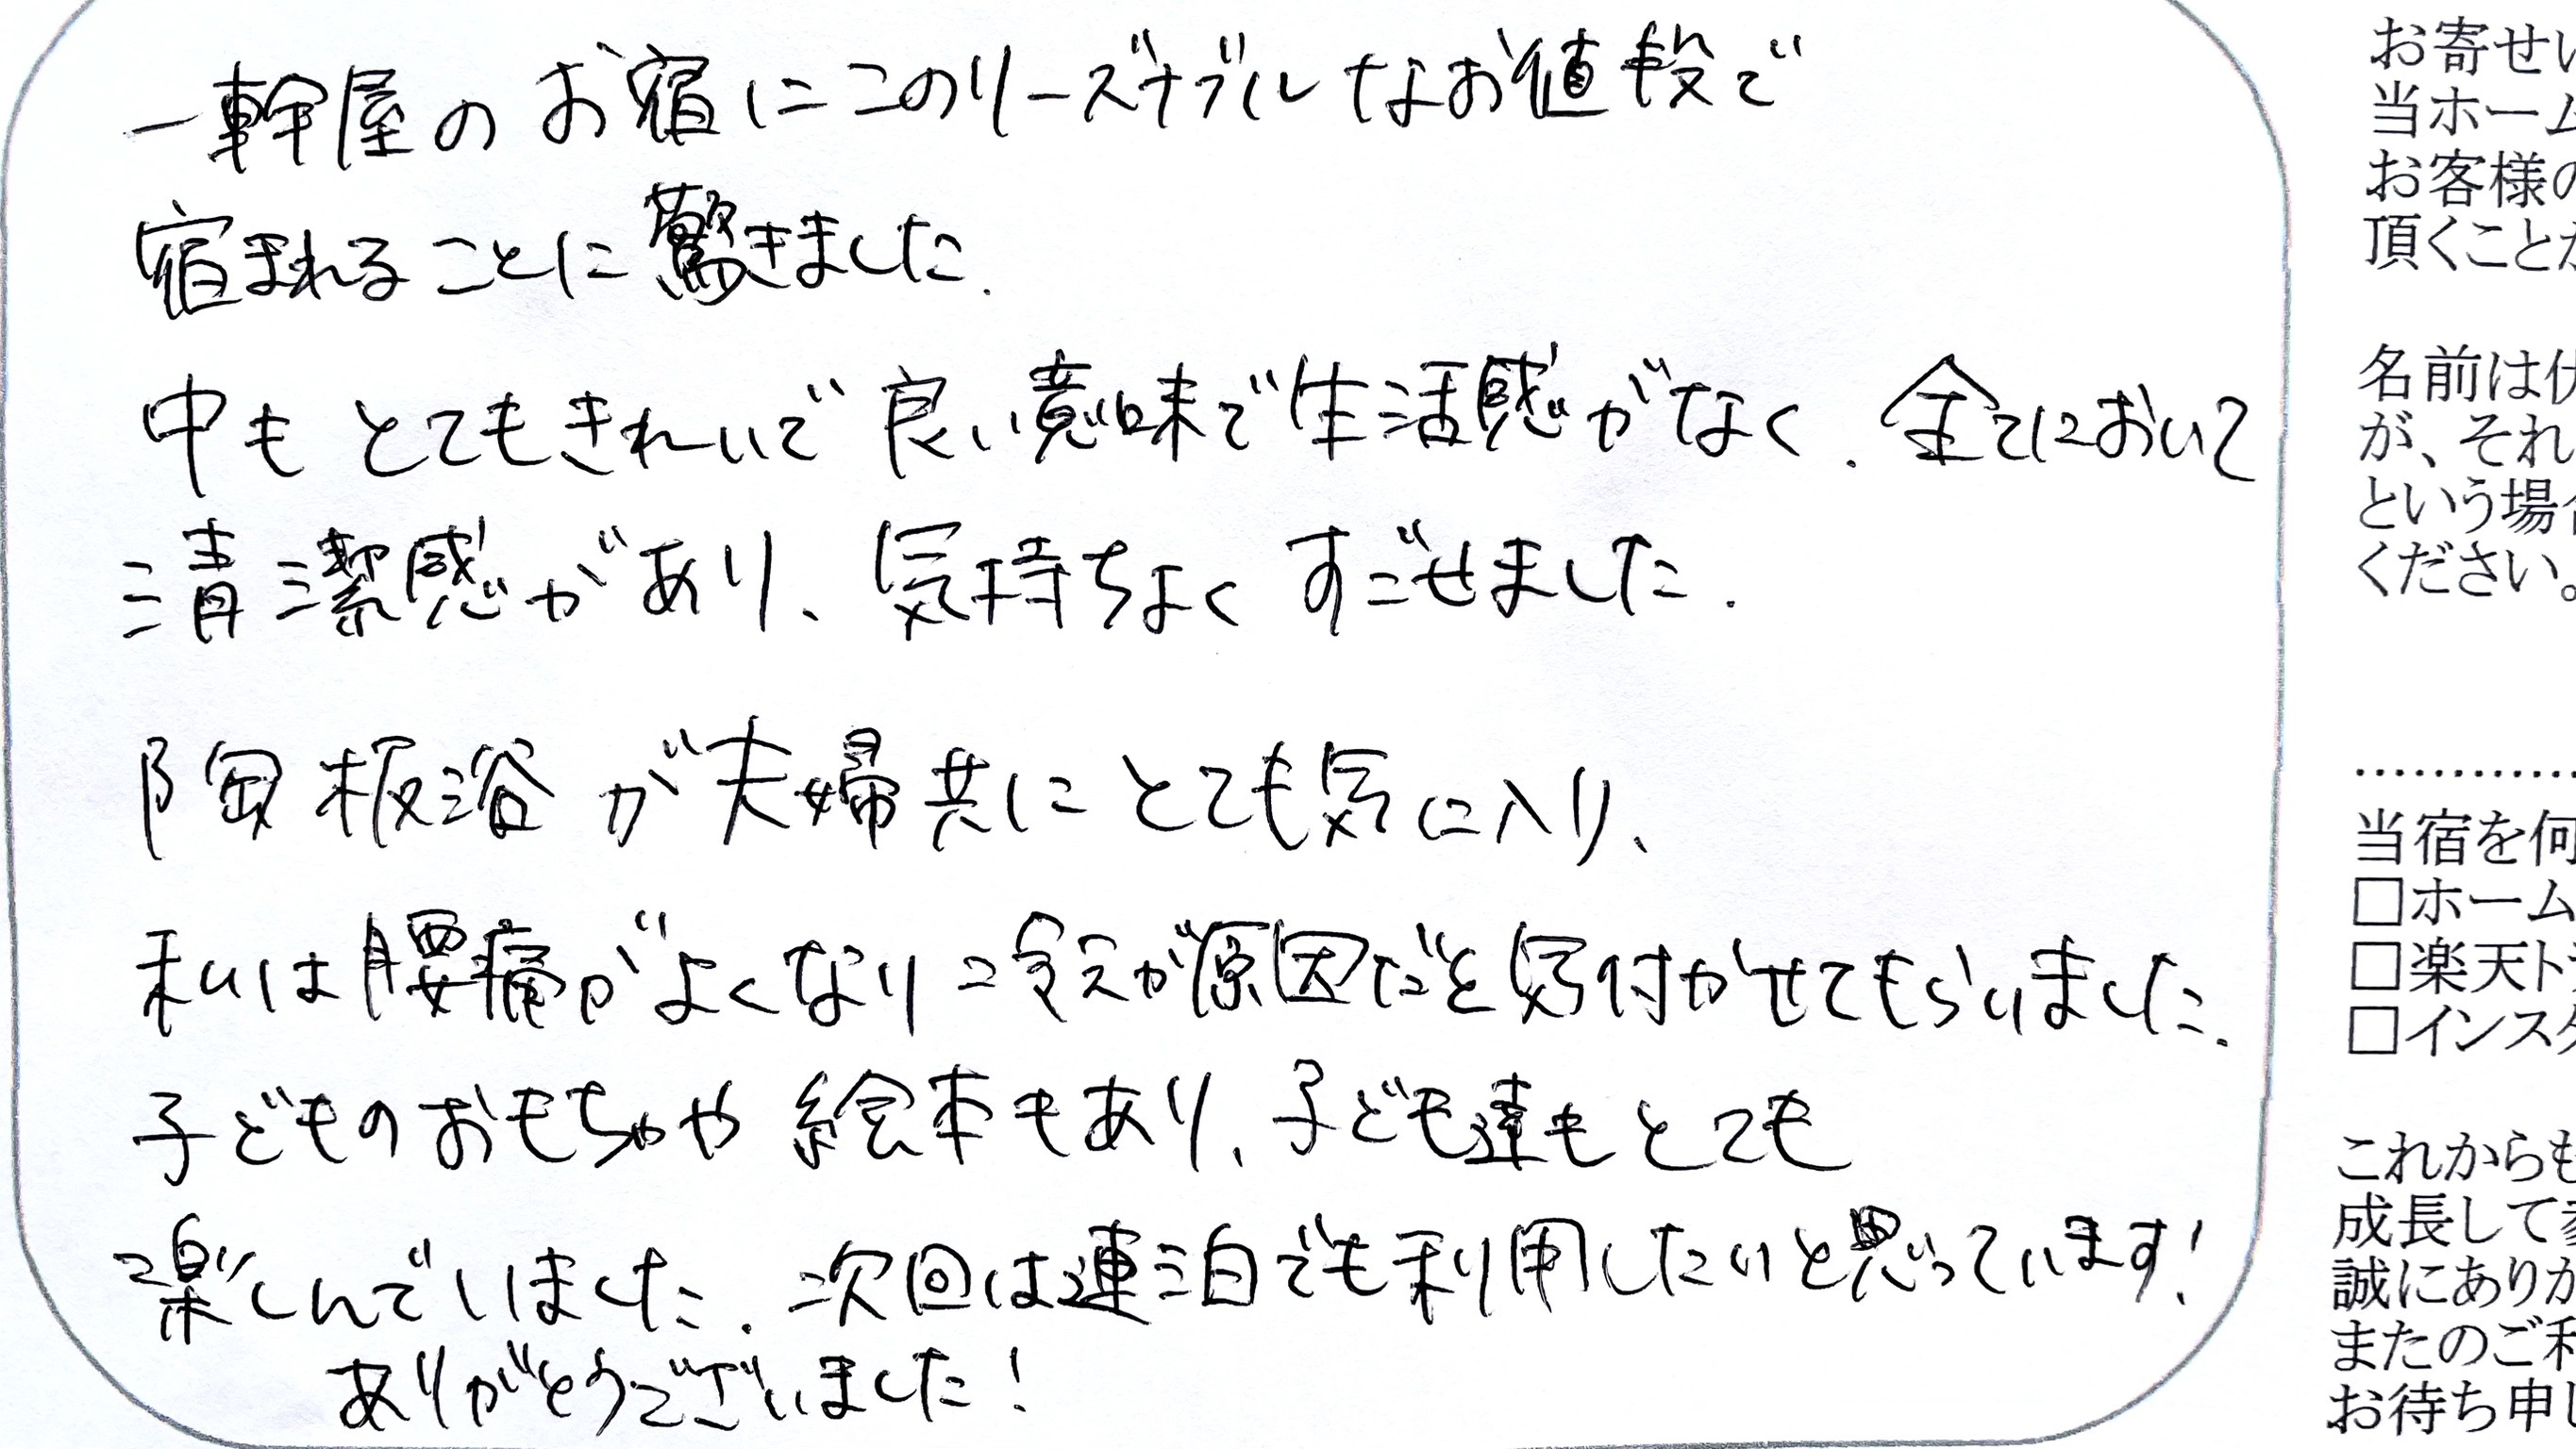 一軒屋のお宿にこのリーズナブルなお値段で
宿まれることに驚きました.
中もとてもきれいで良い意味で生活感がなく. 全てにおいて
清潔感があり、気持ちよくすごせました.
陶板浴が夫婦共にとても気に入り、
私は腰痛がよくなり冷えが原因だと気付かせてもらいました.
子どものおもちゃや絵本もあり、子ども達もとても
楽しんでいました. 次回は連泊でも利用したいと思っています!
ありがとうございました!
お寄せい
当ホーム
お客様の
頂くことが
名前は伏
が、それ
という場合
ください。
当宿を何
□ホーム
□楽天ト
□インスタ
これからも
成長して
誠にありが
またのご利
お待ち申し